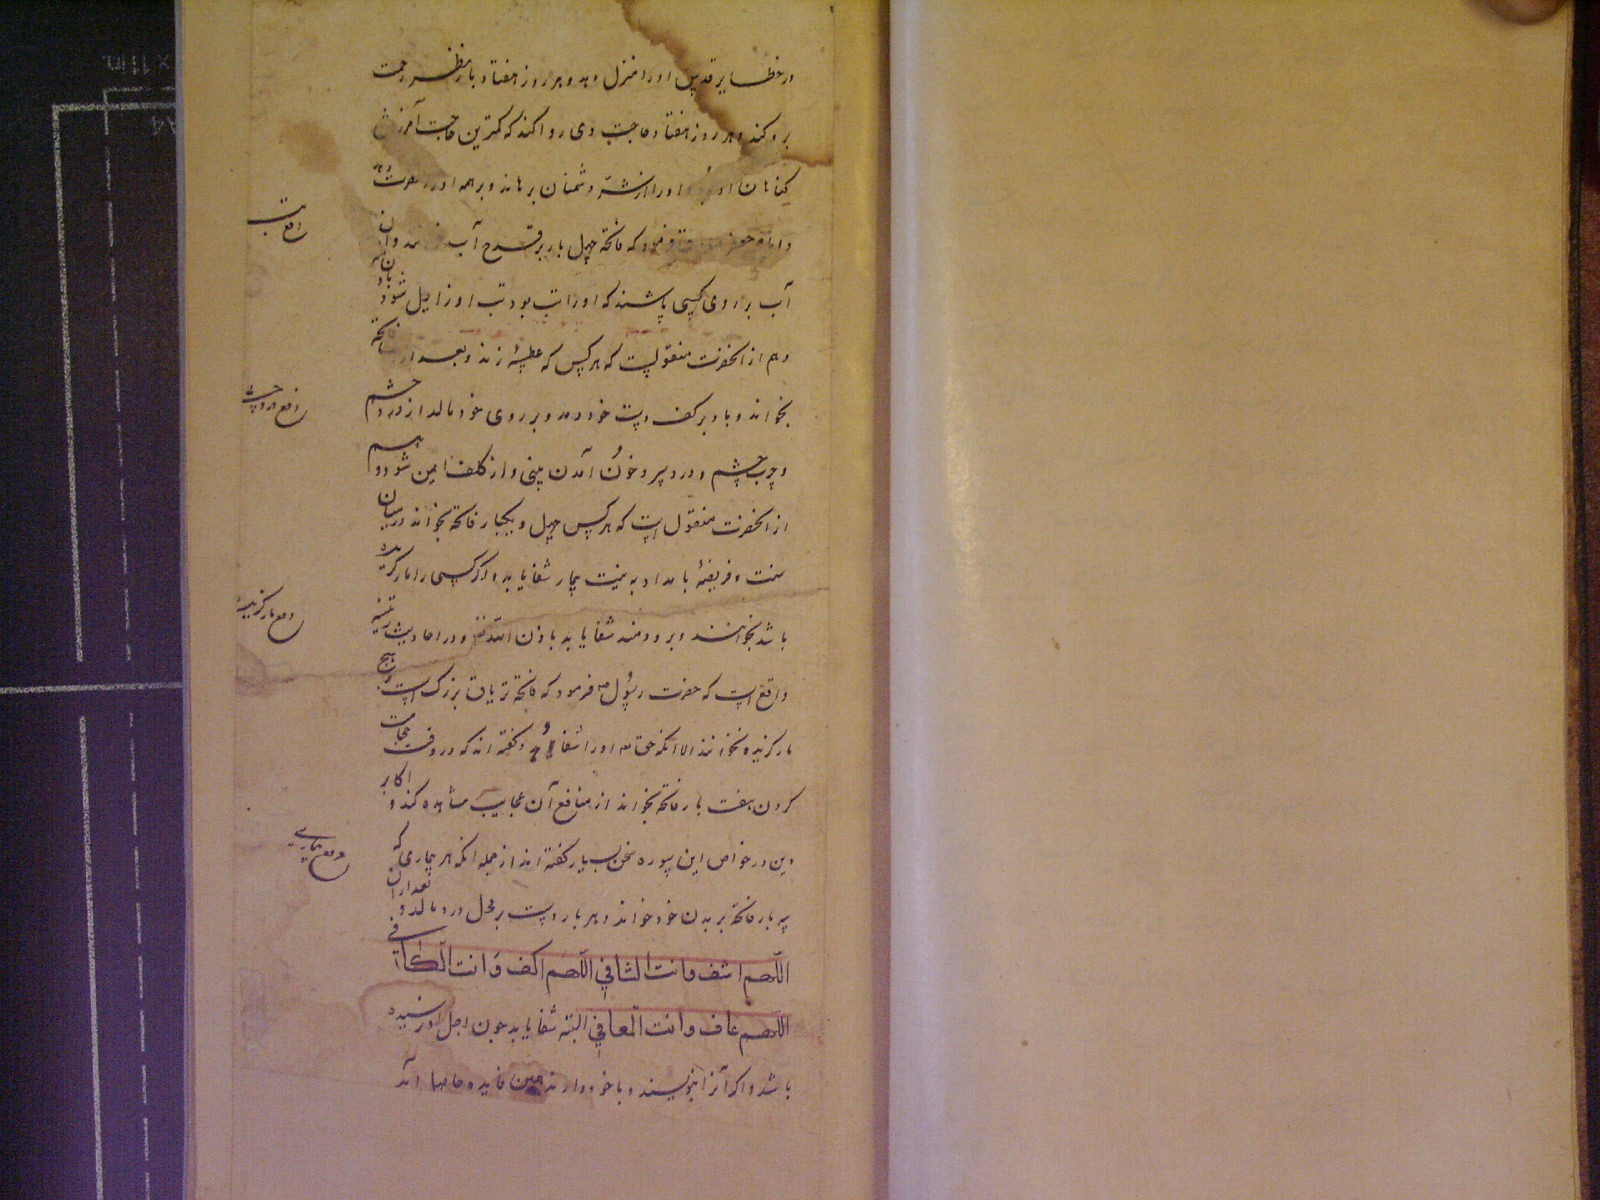 در حظایر قدس او را منزل دهد و هر روز هفتاد بار نظر رحمت
برو کند و هر روز هفتاد حاجت وی روا کند که کمترین حاجت آمرزش
گناهان او بود و او را از شر دشمنان برهاند و بر همه او را نصرت دهد
و امام جعفر صادق فرمود که فاتحه چهل بار بر قدح آب خوانند و آن
دفع تب
آب بر روی کسی پاشند که او را تب بود تب او زایل شود باذن الله
و هم از آنحضرت منقولست که هر کس که عطسه زند و بعد از آن فاتحه
بخواند و باد بر کف دست خود دمد و بر روی خود مالد از درد چشم
دفع درد چشم
و چرب چشم و درد سر و خون آمدن بینی و از کلف ایمن شود و هم
از آنحضرت منقول است که هر کس چهل و یکبار فاتحه بخواند در میان
سنت و فریضه بامداد به نیت بیمار شفا یابد و اگر کسی را مار گزیده
دفع مار گزیده
باشد بخوانند و برو دمند شفا یابد باذن الله تعالی و در احادیث
واقع است که حضرت رسول ص فرمود که فاتحه تریاق بزرگ است بر هیچ
مار گزیده نخوانند الا آنکه حق تعالی او را شفا دهد و گفته اند که در وقت حجامت
کردن هفت بار فاتحه بخواند از منافع آن عجایب مشاهده کند و اکابر
دین در خواص این سوره سخن بسیار گفته اند از جمله آنکه هر بیماری که
دفع بیماری
سه بار فاتحه بر بدن خود خواند و هر بار دست بر محل درد مالد و بعد از آن
اللّهم اشف و انت الشافی اللّهم اکف و انت الکافی
اللّهم عاف و انت المعافی البته شفا یابد چون اجل او نرسیده
باشد و اگر آنرا بنویسند و با خود دارند همین فایده حاصل آید